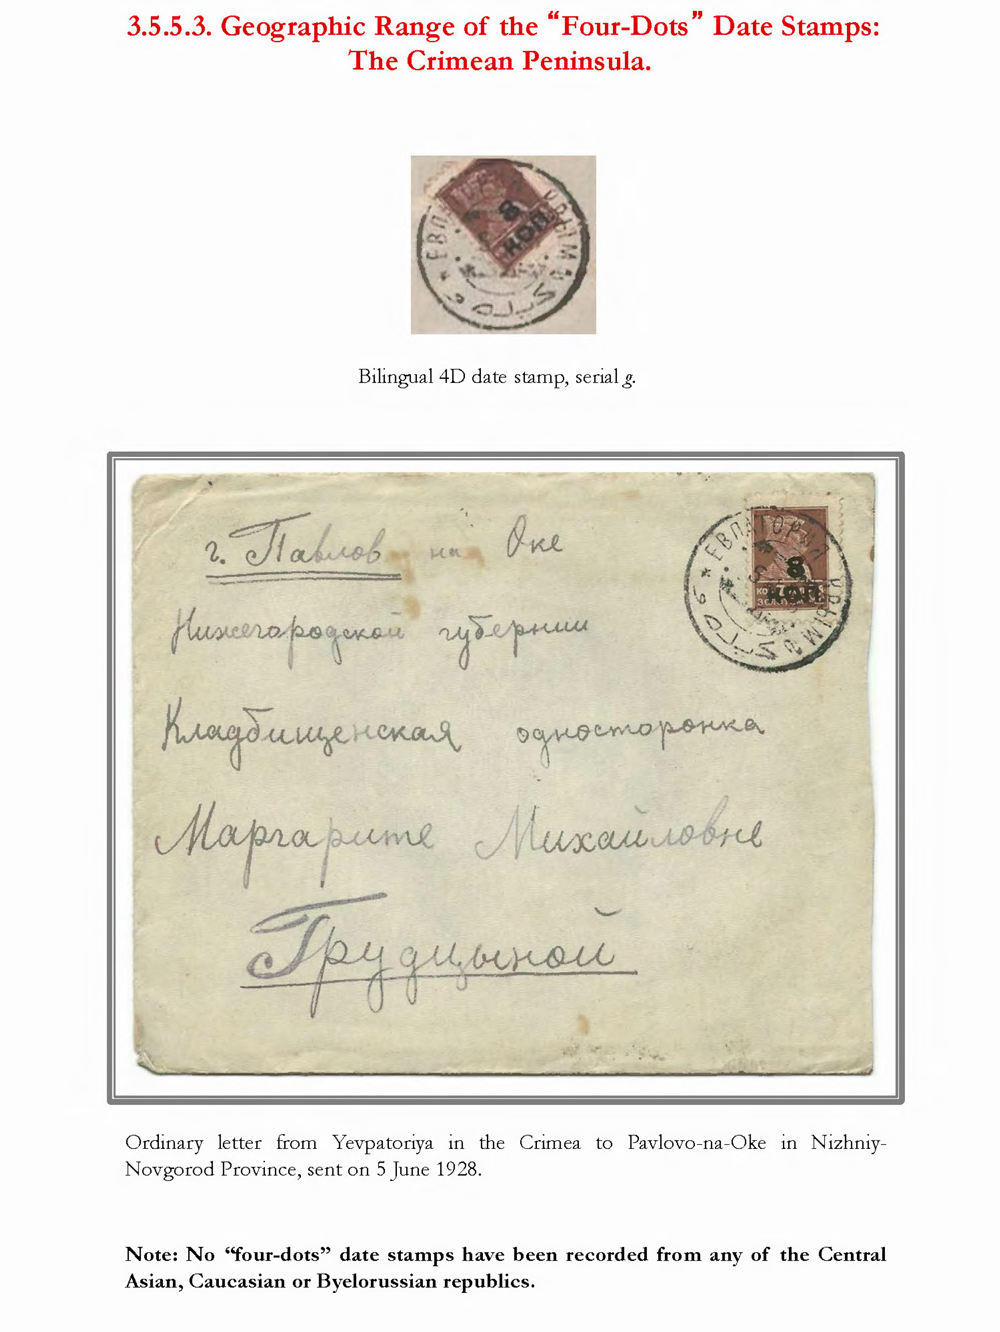 3.5.5.3. Geographic Range of the “Four-Dots” Date Stamps:
The Crimean Peninsula.
8
КОП
КРЫМ
Bilingual 4D date stamp, serial g.
г. Павлов на Оке
ЕВПАТОРИЯ КРЫМ
8
КОП
Нижегородской губернии
Кладбищенская односторонка
Маргарите Михайловне
Грудцыной
Ordinary letter from Yevpatoriya in the Crimea to Pavlovo-na-Oke in Nizhniy-
Novgorod Province, sent on 5 June 1928.
Note: No “four-dots” date stamps have been recorded from any of the Central
Asian, Caucasian or Byelorussian republics.